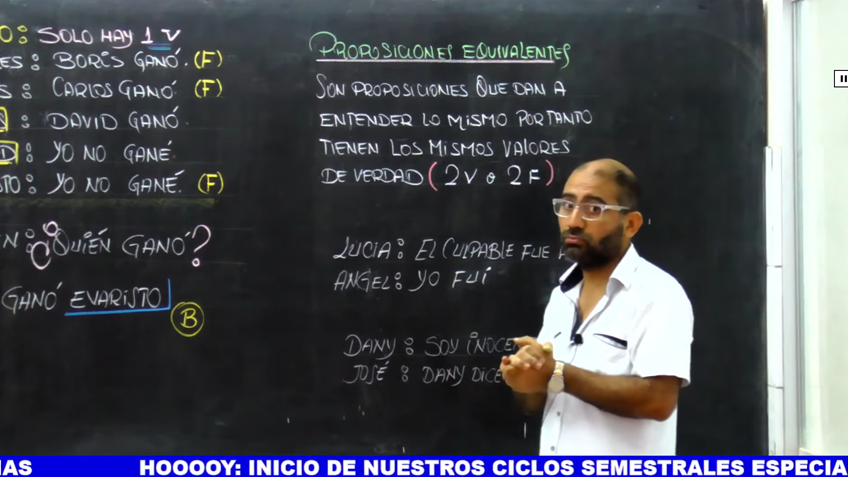 O: SOLO HAY 1 V
ES: BORIS GANÓ. (F)
S: CARLOS GANÓ (F)
: DAVID GANÓ.
D: YO NO GANÉ.
STO: YO NO GANÉ. (F)
N: ¿QUIÉN GANÓ?
GANÓ EVARISTO
B
PROPOSICIONES EQUIVALENTES
SON PROPOSICIONES QUE DAN A
ENTENDER LO MISMO POR TANTO
TIENEN LOS MISMOS VALORES
DE VERDAD (2V o 2F)
LUCIA: EL CULPABLE FUE
ANGEL: YO FUÍ
DANY: SOY INOCE
JOSÉ: DANY DICE
IAS HOOOOY: INICIO DE NUESTROS CICLOS SEMESTRALES ESPECIA